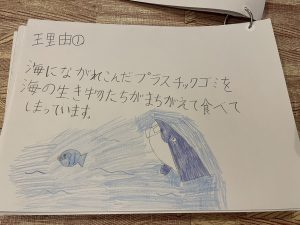 理由①
海にながれこんだプラスチックゴミを
海の生き物たちがまちがえて食べて
しまっています。